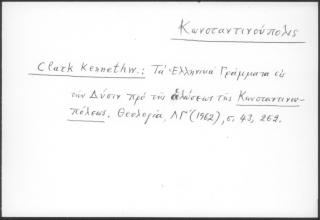 Κωνσταντινούπολις
Clark Kenneth W.: Τὰ Ἑλληνικὰ Γράμματα εἰς
τὴν Δύσιν πρὸ τῆς ἁλώσεως τῆς Κωνσταντινου-
πόλεως. Θεολογία, ΛΓ΄ (1962), σ. 43, 262.